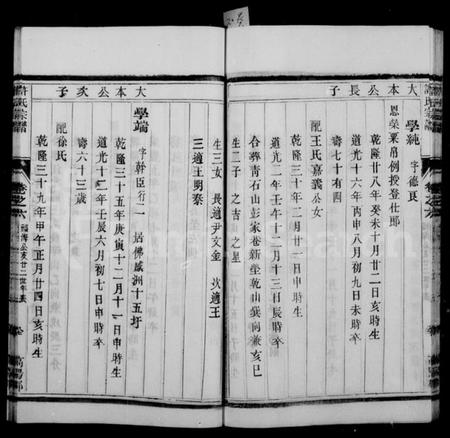 大本公長子
學純 字德民
恩榮業吊例授登仕郎
乾隆廿八年癸未十月廿二日亥時生
道光十六年丙申八月初九日未時卒
壽七十有四
配王氏嘉義公女
乾隆三十年二月廿一日申時生
道光二年壬午十二月十三日辰時卒
合葬青石山彭家巷新塋乾山巽向兼亥巳
生二子 之吉 之星
生三女 長適尹文金 次適王
三適王明泰
大本公次子
學端 字幹臣行二 居佛感洲十五圩
乾隆三十五年庚寅十二月十一日申時生
道光十二年壬辰六月初七日申時卒
壽六十三歲
配徐氏
乾隆三十九年甲午正月廿四日亥時生
卷之六